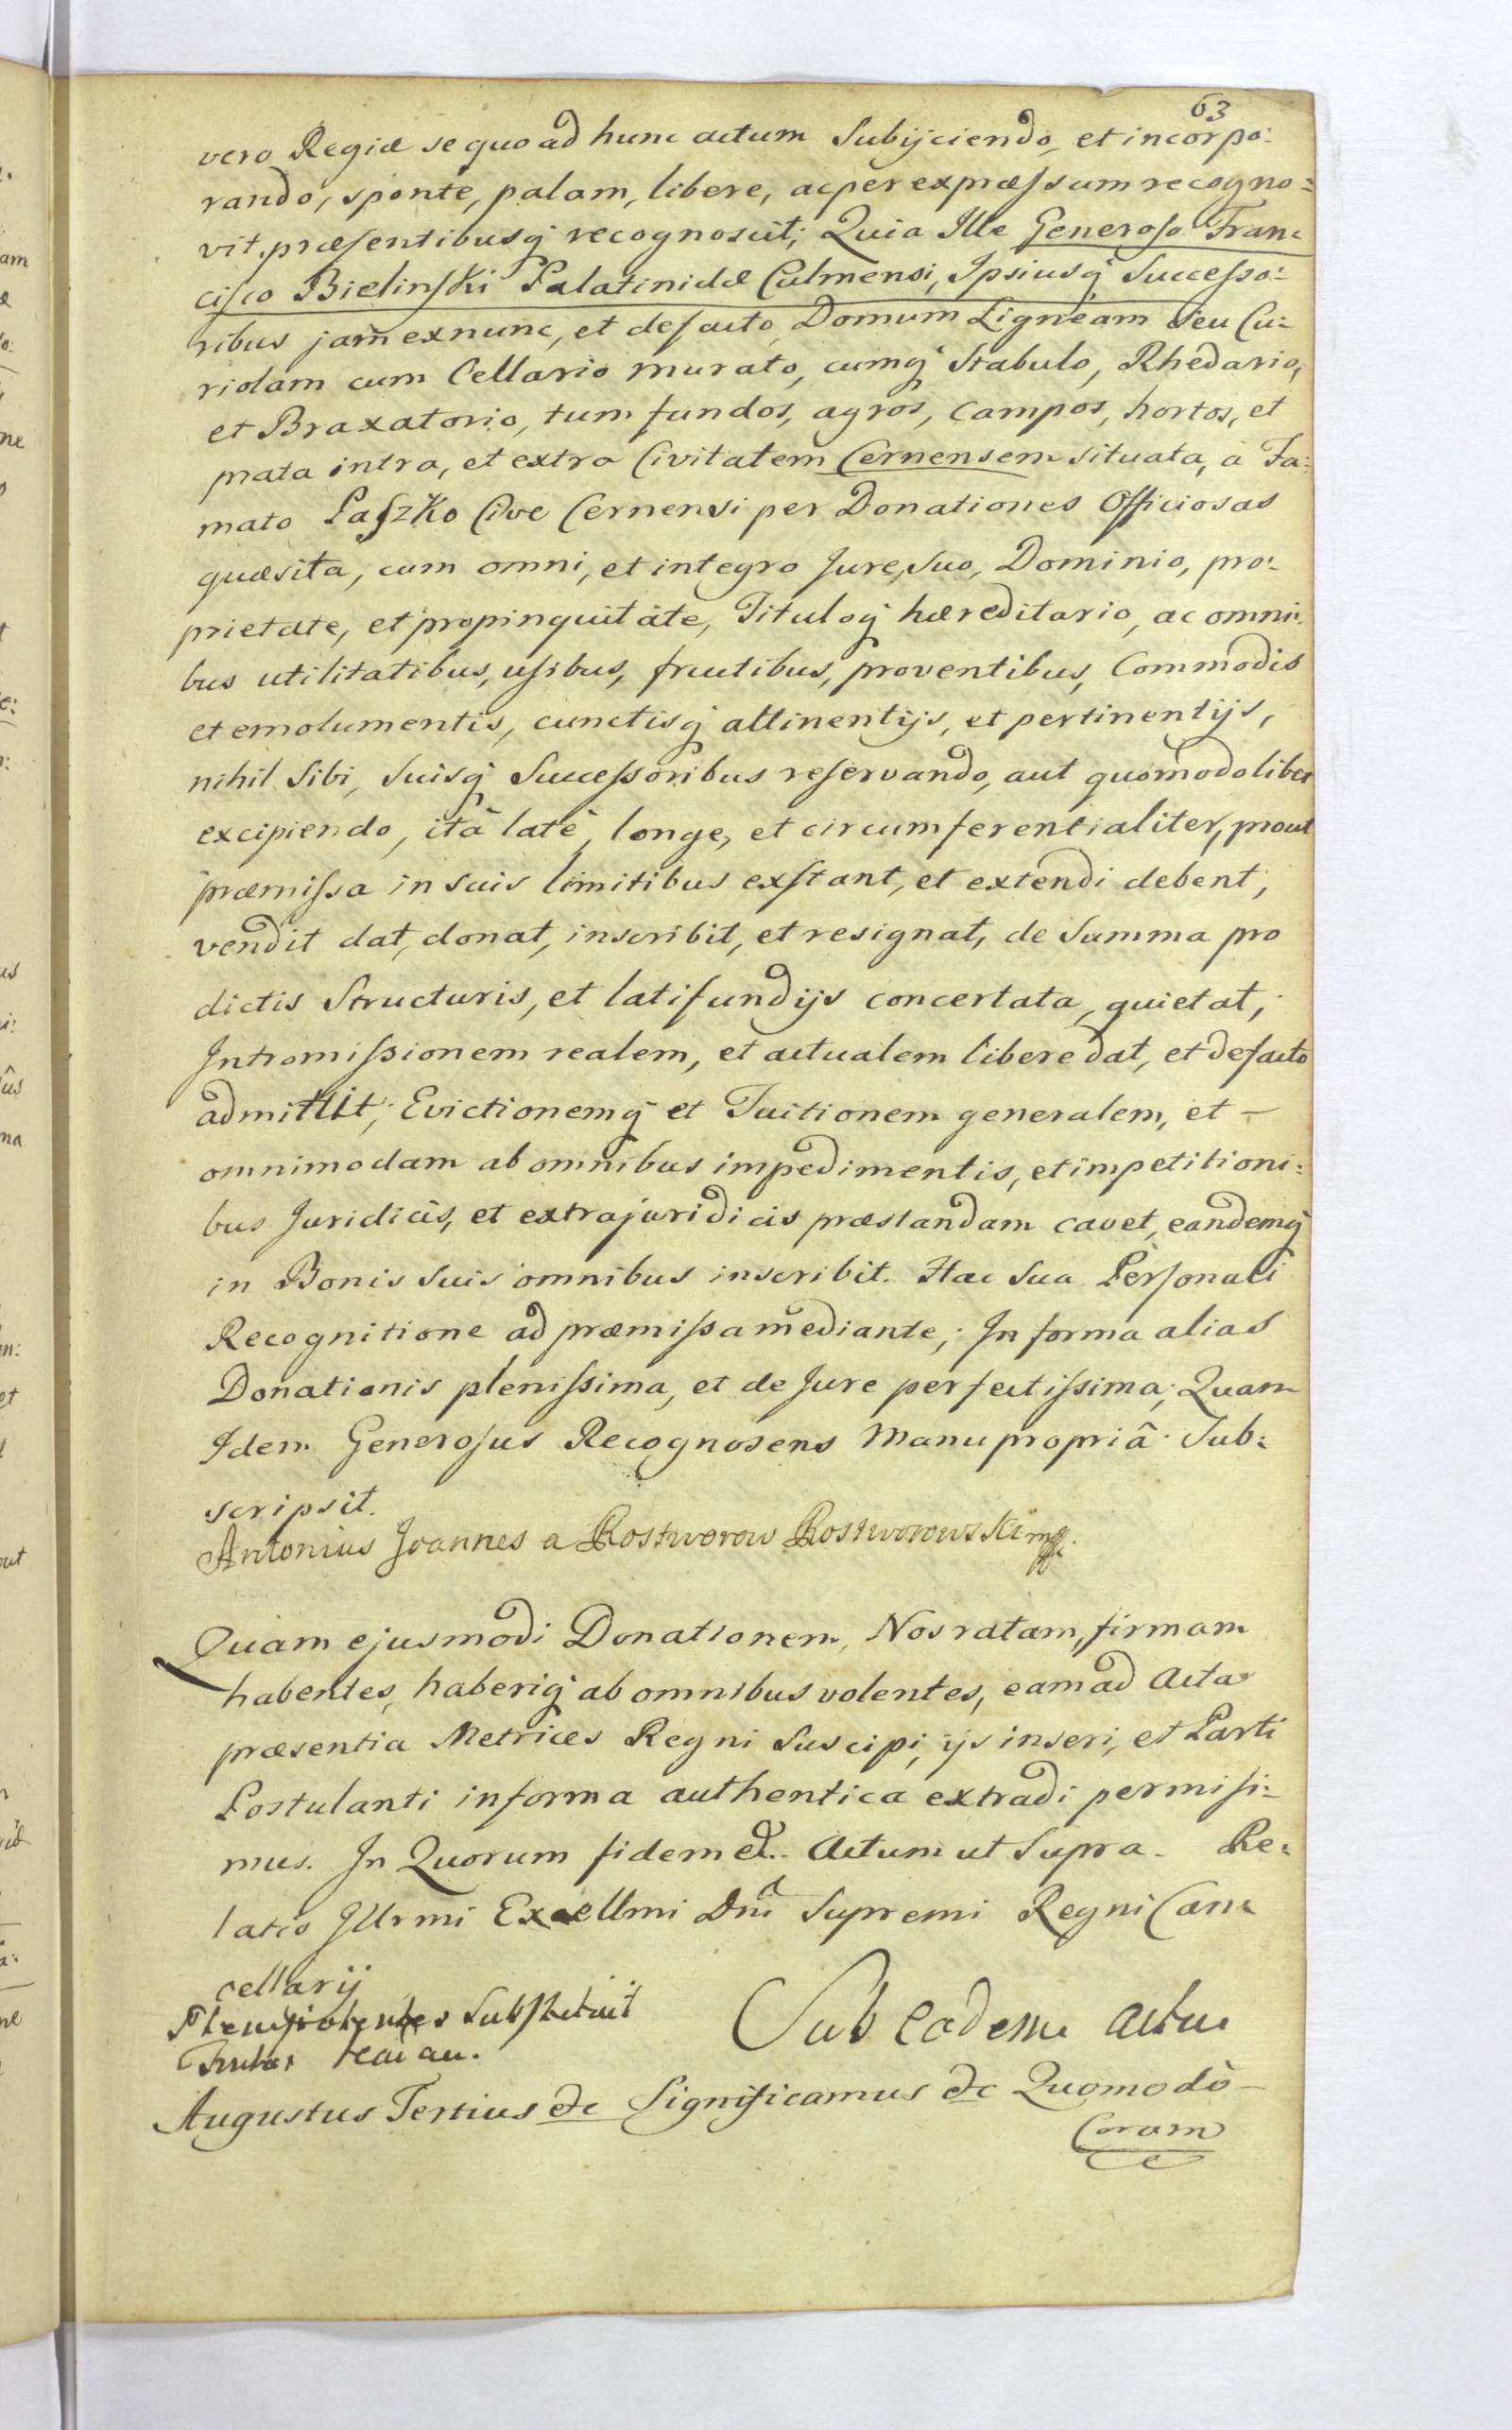 63
vero Regiæ se quoad hunc actum Subijciendo, et incorpo:
rando, sponte, palam, libere, ac per expræssum recogno:
vit, præsentibusq recognoscit; Quia Ille Generoso Fran
cisco Bielinski Palatinidæ Culmensi, Ipsiusq Successo:
ribus jam ex nunc, et de facto, Domum Ligneam seu Cu:
riolam cum Cellario murato, cumq Stabulo, Rhedario,
et Braxatorio, tum fundos, agros, campos, hortos, et
prata intra, et extra Civitatem Cernensem situata, à Fa:
mato Paszko Cive Cernensi per Donationes Officiosas
quæsita, cum omni, et integro Jure, suo, Dominio, pro:
prietate, et propinquitate, Tituloq hæreditario, ac omni:
bus utilitatibus, usibus, fructibus, proventibus, Commodis
et emolumentis, cunctisq attinentijs, et pertinentijs,
nihil Sibi, suisq Successoribus reservando, aut quomodolibet
excipiendo, ità latè, longe, et circumferentialiter, prout
præmissa in suis limitibus exstant, et extendi debent,
vendit dat, donat, inscribit, et resignat, de Summa pro
dictis Structuris, et latifundijs concertata, quietat,
Intromissionem realem, et actualem libere dat, et de facto
admittit; Evictionemq et Tuitionem generalem, et –
omnimodam ab omnibus impedimentis, et impetitioni:
bus Juridicis, et extrajuridicis præstandam cavet, eandemq
in Bonis suis omnibus inscribit. Hac sua Personali
Recognitione ad præmissa mediante; In forma alias
Donationis plenissima, et de Jure perfectissima; Quam
Idem Generosus Recognoscens Manu propriâ Sub:
scripsit.
Antonius Joannes a Rostworow Rostworowski mp.
Quam ejusmodi Donationem, Nos ratam, firmam
habentes, haberiq ab omnibus volentes, eam ad Acta
præsentia Metrices Regni Suscipi, ijs inseri, et Parti
Postulanti in forma authentica extradi permisi:
mus. In Quorum fidem &. Actum ut Supra. Re:
latio Illrmi Excellmi Dni Supremi Regni Can
cellarij
Substituit
Sub eodem actu
Augustus Tertius &c Significamus &c Quomodò –
Coram